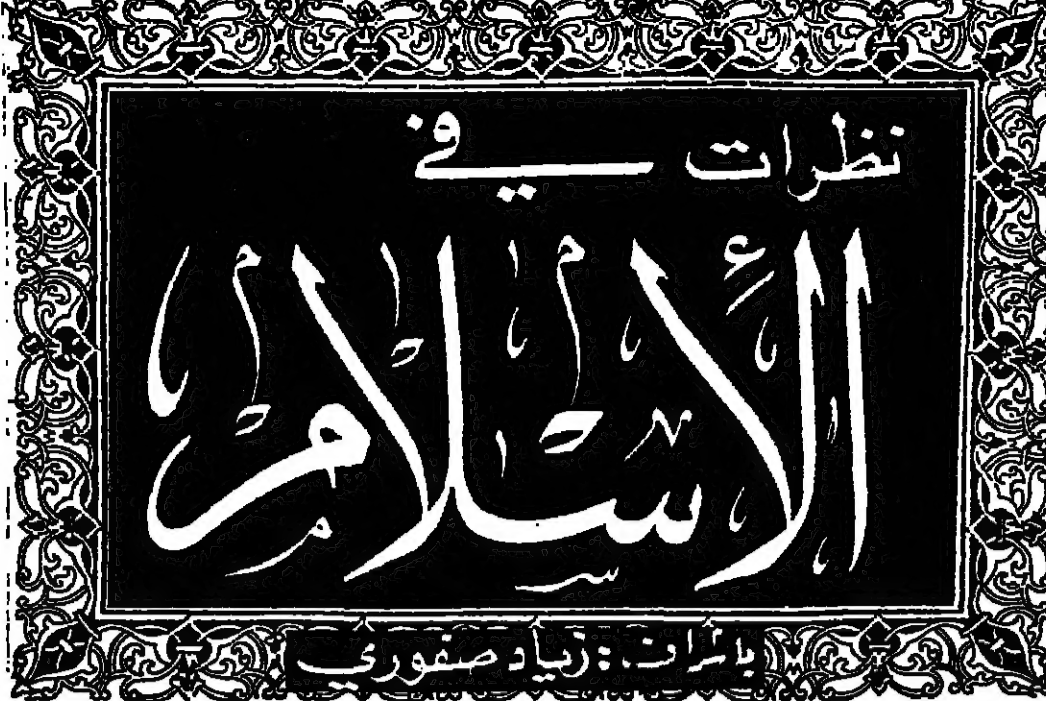 نظرات في
الإسلام
بإشراف : زياد صفوري